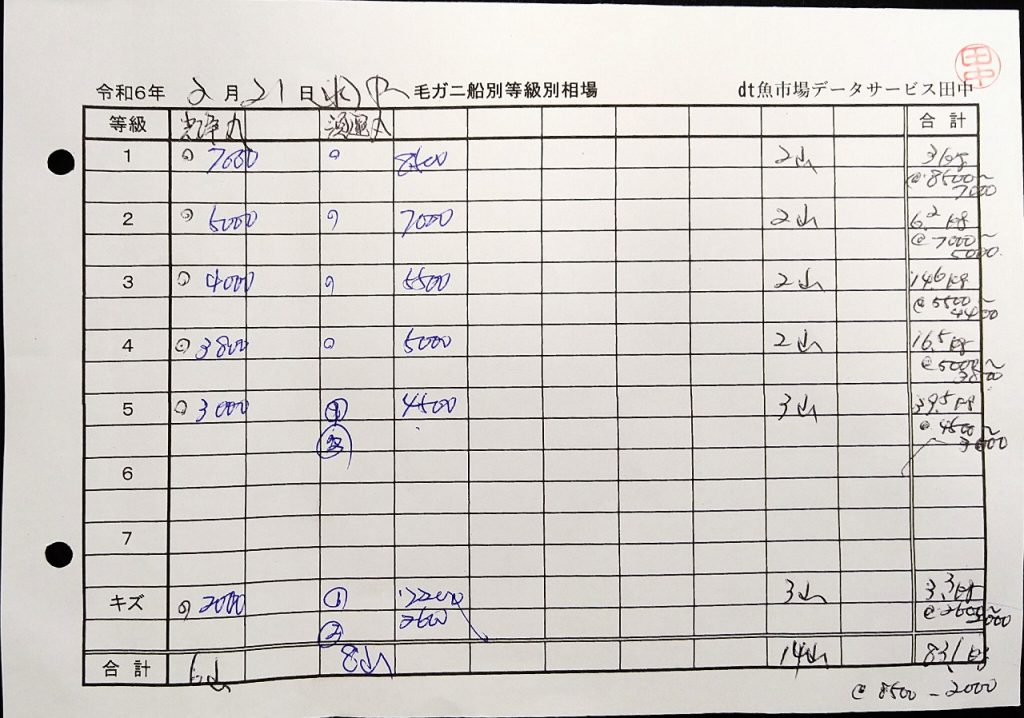 令和6年 2月21日(水) 中 毛ガニ船別等級別相場 dt魚市場データサービス田中
田中
等級 丸 丸 合計
1 7000 8500 2山 3.1kg
@8500~
7000
2 5000 7000 2山 6.2kg
@7000~
5000
3 4000 5500 2山 14.6kg
@5500~
4 3800 5000 2山 16.5kg
@5000~
3800
5 3000 ① 4500 3山 39.5kg
② @4500~
3000
6
7
キズ 2000 ① 3山 3.3kg
② 2600 @2600~
2000
合計 6山 8山 14山 83.1kg
@8500-2000